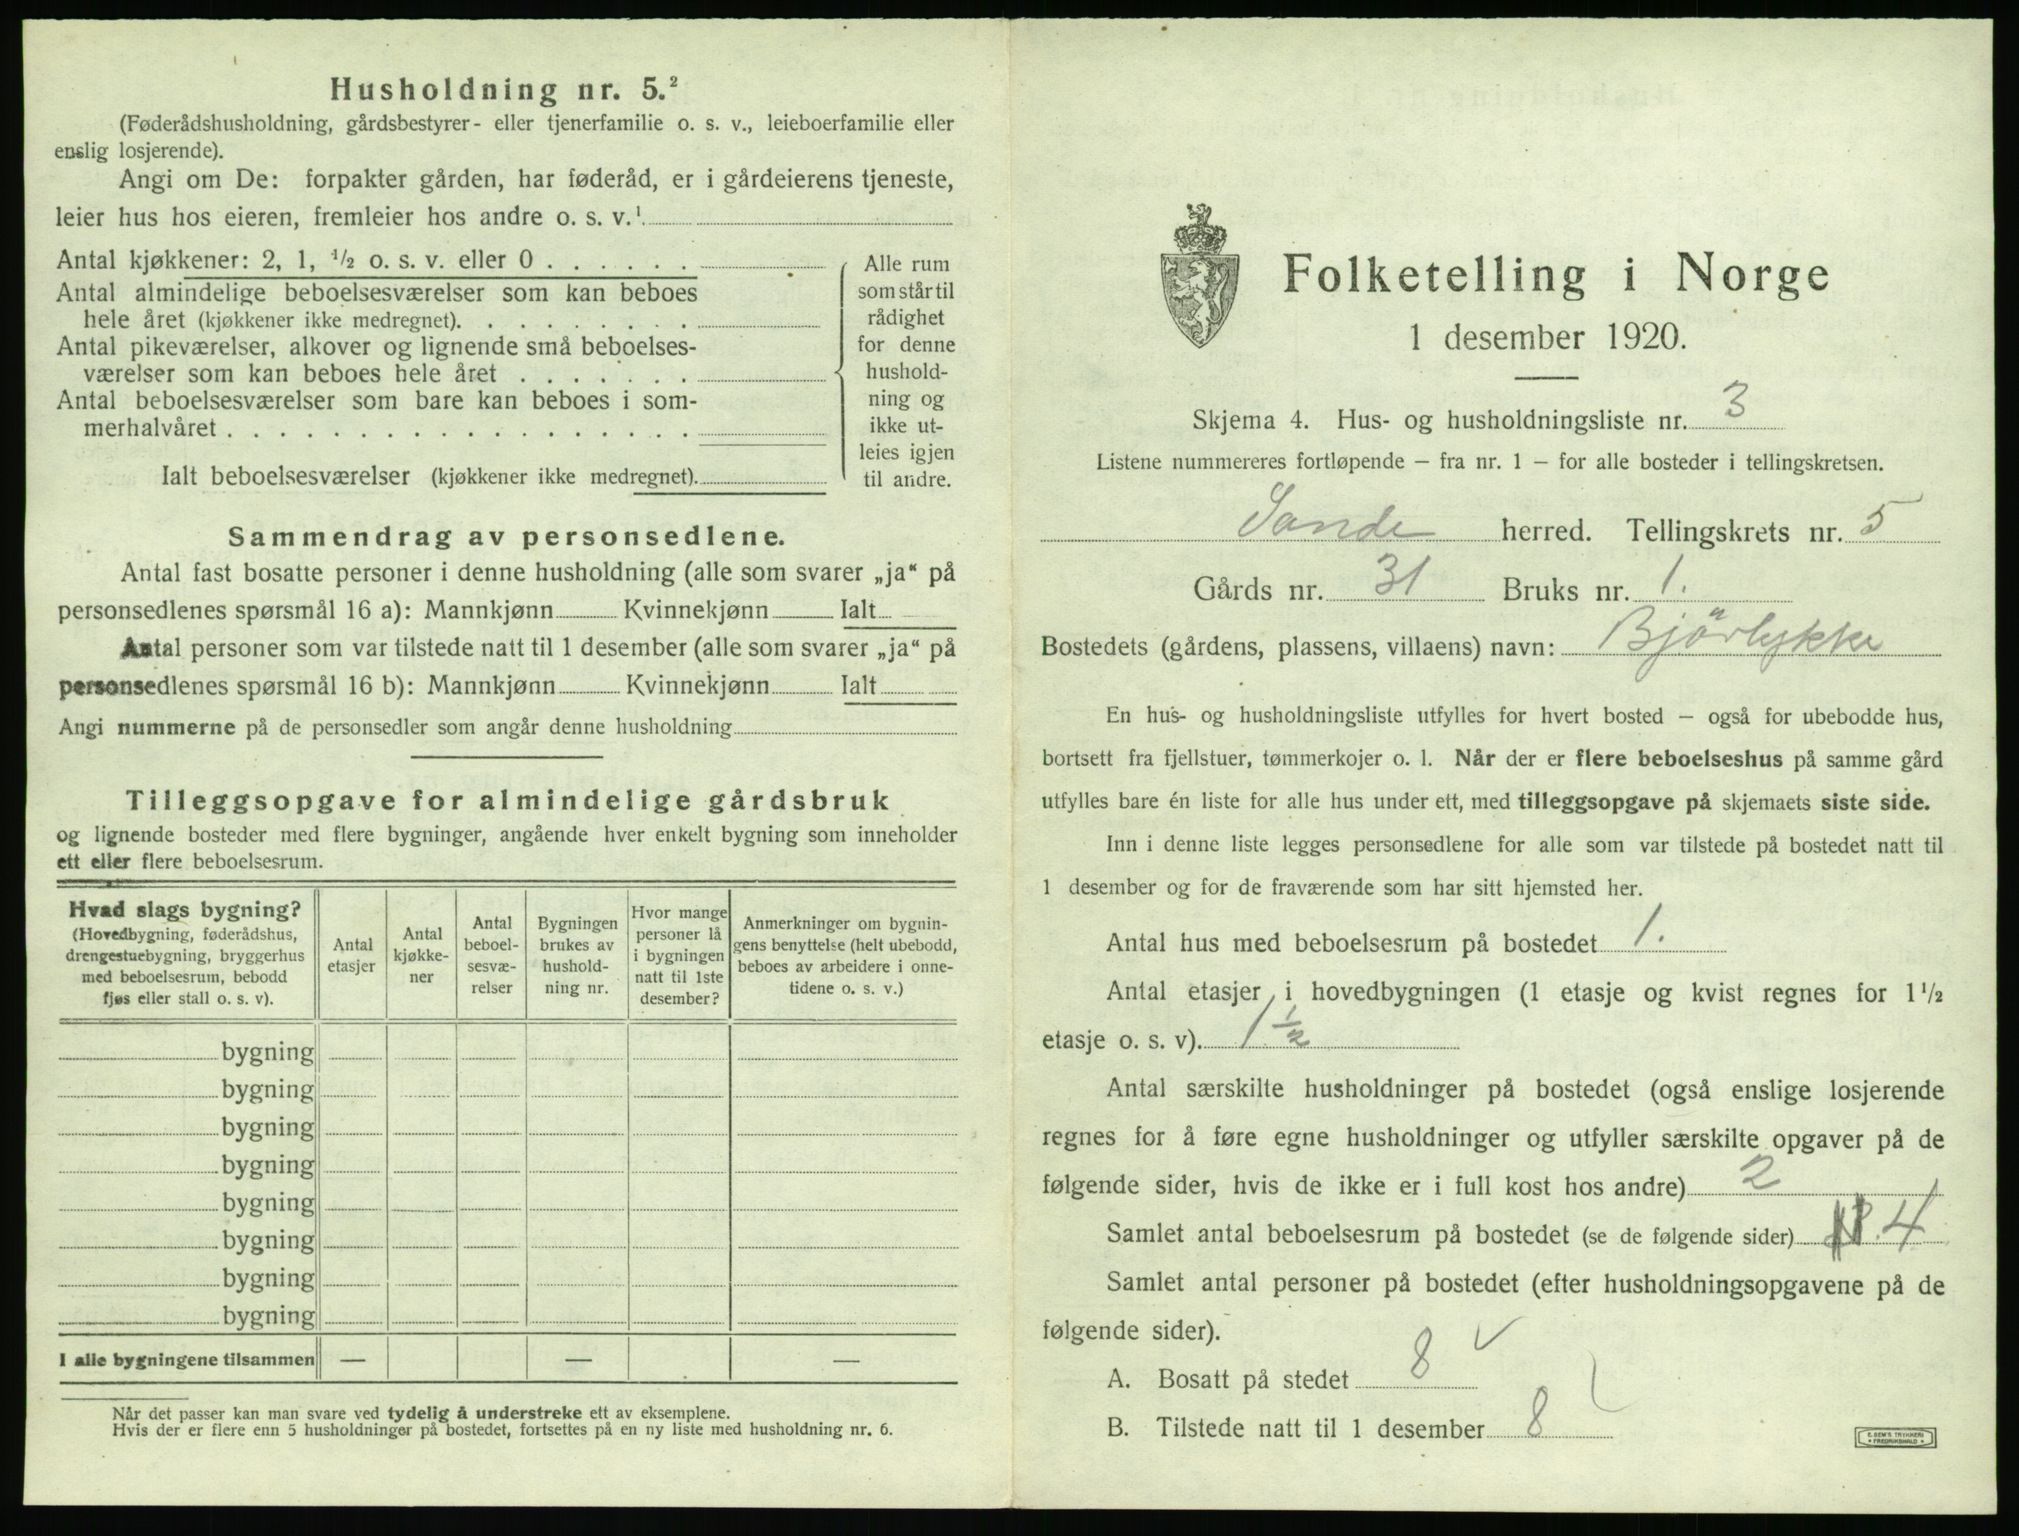 Husholdning nr. 5.²
(Føderådshusholdning, gårdsbestyrer- eller tjenerfamilie o. s. v., leieboerfamilie eller
enslig losjerende).
Angi om De: forpakter gården, har føderåd, er i gårdeierens tjeneste,
leier hus hos eieren, fremleier hos andre o. s. v.¹
Antal kjøkkener: 2, 1, ½ o. s. v. eller 0 . . . . . .
Antal almindelige beboelsesværelser som kan beboes
hele året (kjøkkener ikke medregnet). . . . . . . . .
Antal pikeværelser, alkover og lignende små beboelses-
værelser som kan beboes hele året . . . . . . .
Antal beboelsesværelser som bare kan beboes i som-
merhalvåret . . . . . . . . . . . . . . . . . .
Ialt beboelsesværelser (kjøkkener ikke medregnet).
Alle rum
som står til
rådighet
for denne
hushold-
ning og
ikke ut-
leies igjen
til andre.
Sammendrag av personsedlene.
Antal fast bosatte personer i denne husholdning (alle som svarer „ja“ på
personsedlenes spørsmål 16 a): Mannkjønn Kvinnekjønn Ialt
Antal personer som var tilstede natt til 1 desember (alle som svarer „ja“ på
personsedlenes spørsmål 16 b): Mannkjønn Kvinnekjønn Ialt
Angi nummerne på de personsedler som angår denne husholdning
Tilleggsopgave for almindelige gårdsbruk
og lignende bosteder med flere bygninger, angående hver enkelt bygning som inneholder
ett eller flere beboelsesrum.
Hvad slags bygning?
(Hovedbygning, føderådshus,
drengestuebygning, bryggerhus
med beboelsesrum, bebodd
fjøs eller stall o. s. v).
Antal
etasjer
Antal
kjøkke-
ner
Antal
beboel-
sesvæ-
relser
Bygningen
brukes av
hushold-
ning nr.
Hvor mange
personer lå
i bygningen
natt til 1ste
desember?
Anmerkninger om bygnin-
gens benyttelse (helt ubebodd,
beboes av arbeidere i onne-
tidene o. s. v.)
bygning
bygning
bygning
bygning
bygning
bygning
bygning
bygning
I alle bygningene tilsammen — — —
Når det passer kan man svare ved tydelig å understreke ett av eksemplene.
Hvis der er flere enn 5 husholdninger på bostedet, fortsettes på en ny liste med husholdning nr. 6.
Folketelling i Norge
1 desember 1920.
Skjema 4. Hus- og husholdningsliste nr. 3
Listene nummereres fortløpende – fra nr. 1 – for alle bosteder i tellingskretsen.
Sande herred. Tellingskrets nr. 5
Gårds nr. 31 Bruks nr. 1.
Bostedets (gårdens, plassens, villaens) navn: Bjørlykke
En hus- og husholdningsliste utfylles for hvert bosted – også for ubebodde hus,
bortsett fra fjellstuer, tømmerkojer o. l. Når der er flere beboelseshus på samme gård
utfylles bare én liste for alle hus under ett, med tilleggsopgave på skjemaets siste side.
Inn i denne liste legges personsedlene for alle som var tilstede på bostedet natt til
1 desember og for de fraværende som har sitt hjemsted her.
Antal hus med beboelsesrum på bostedet 1.
Antal etasjer i hovedbygningen (1 etasje og kvist regnes for 1½
etasje o. s. v). 1 ½
Antal særskilte husholdninger på bostedet (også enslige losjerende
regnes for å føre egne husholdninger og utfyller særskilte opgaver på de
følgende sider, hvis de ikke er i full kost hos andre) 2
Samlet antal beboelsesrum på bostedet (se de følgende sider) 4
Samlet antal personer på bostedet (efter husholdningsopgavene på de
følgende sider).
A. Bosatt på stedet 8 ✓
B. Tilstede natt til 1 desember 8
E. SEM'S TRYKKERI
• FREDRIKSHALD •